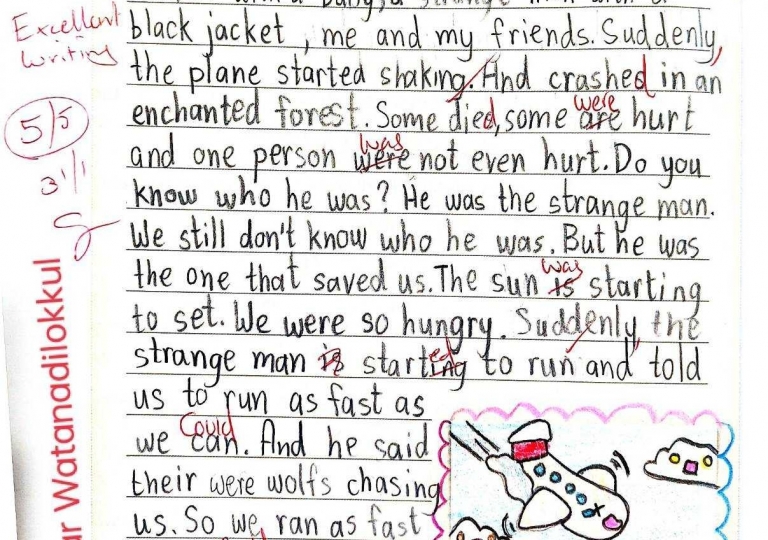 black jacket, me and my friends. Suddenly,
the plane started shaking. And crashed in an
enchanted forest. Some died, some are were hurt
and one person were was not even hurt. Do you
know who he was? He was the strange man.
We still don't know who he was. But he was
the one that saved us. The sun is was starting
to set. We were so hungry. Suddenly, the
strange man is started to run and told
us to run as fast as
we can could. And he said
their were wolfs chasing
us. So we, ran as fast
Excellent
writing
5/5
31/1
ur Watanadilokkul